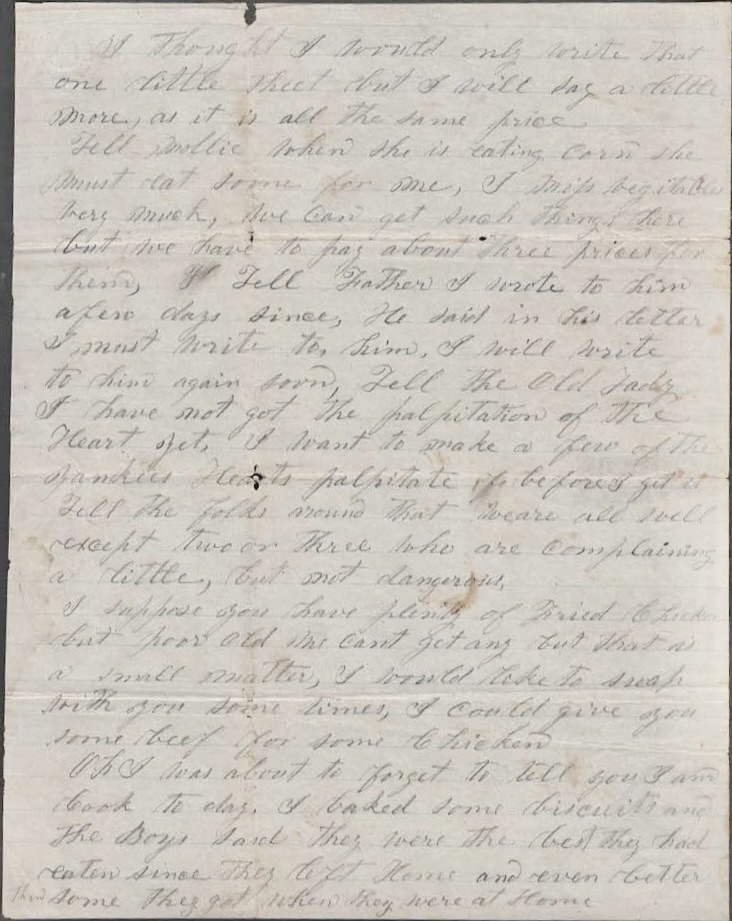 I Thought I would only write that
one little sheet but I will say a little
more, as it is all the same price
Tell Mollie when she is eating corn she
must eat some for me, I miss vegitables
very much, we can get such things here
but we have to pay about three prices for
them, Tell Father I wrote to him
a few days since, He said in his letter
I must write to him, I will write
to him again soon, Tell the Old Lady
I have not got the palpitation of the
Heart yet, I want to make a few of the
yankees Hearts palpitate before I get it
Tell the folks around that we are all well
except two or three who are complaining
a little, but not dangerous,
I suppose you have plenty of Fried Chicken
but poor old me cant get any but that is
a small matter, I would like to swap
with you some times, I could give you
some beef for some Chicken
Oh I was about to forget to tell you I am
Cook to day. I baked some biscuits and
the Boys said they were the best they had
eaten since they left Home and even better
than some they got when they were at Home